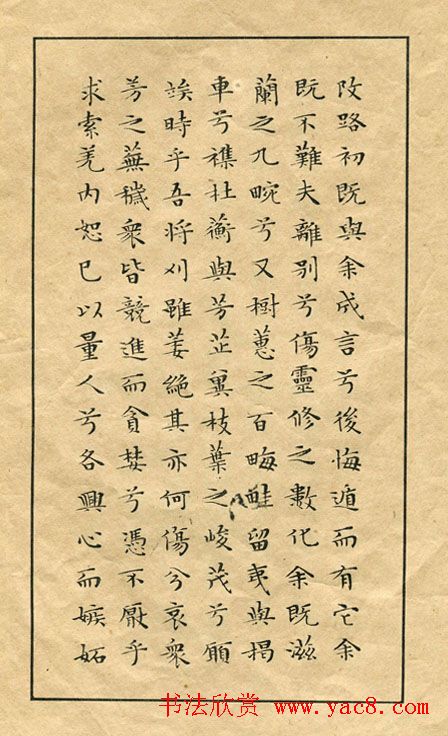 改路初既與余成言兮後悔遁而有它余
既不難夫離別兮傷靈修之數化余既滋
蘭之九畹兮又樹蕙之百畮畦留夷與揭
車兮襍杜蘅與芳芷冀枝葉之峻茂兮願
竢時乎吾將刈雖萎絶其亦何傷兮哀衆
芳之蕪穢衆皆競進而貪婪兮憑不厭乎
求索羌內恕己以量人兮各興心而嫉妬
书法欣赏 www.yac8.com